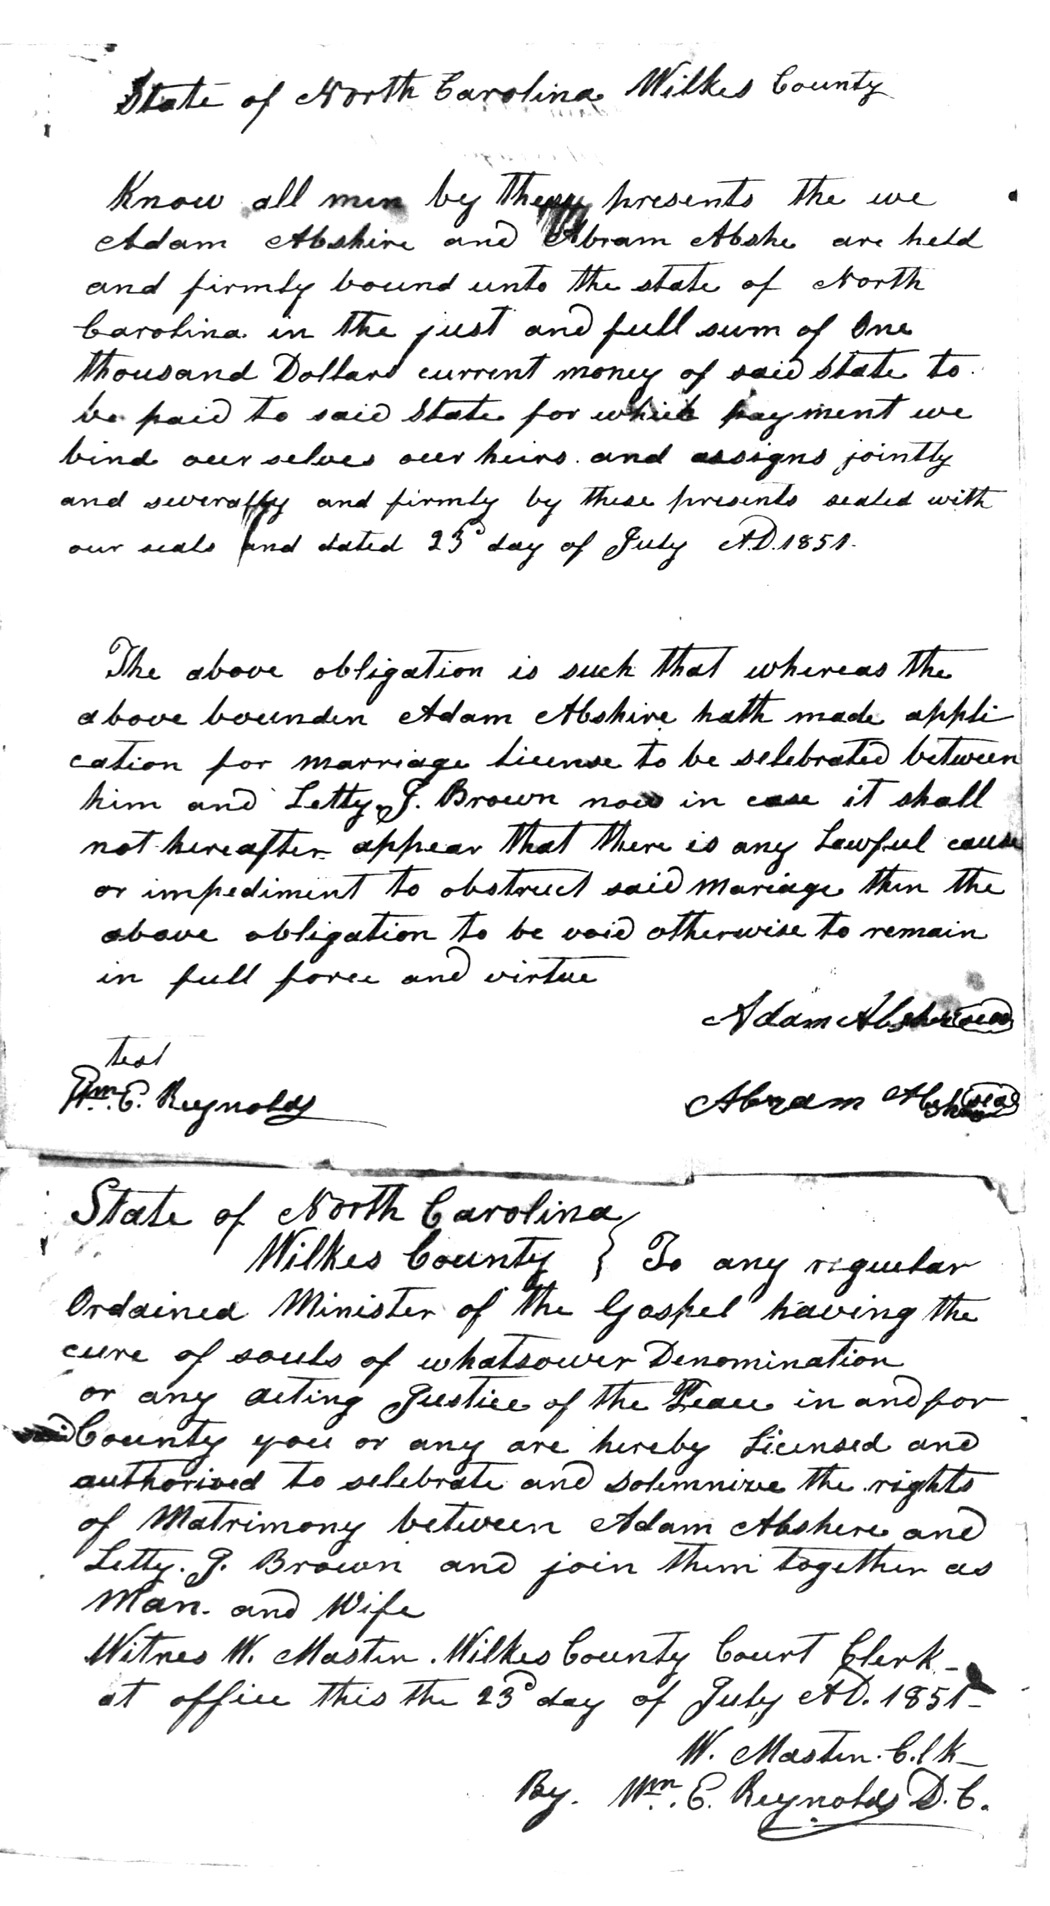 State of North Carolina Wilkes County
Know all men by these presents the we
Adam Abshire and Abram Abshe are held
and firmly bound unto the state of North
Carolina in the just and full sum of One
thousand Dollars current money of said State to
be paid to said State for which payment we
bind our selves our heirs and assigns jointly
and severally and firmly by these presents sealed with
our seals and dated 23d day of July A.D. 1851.
The above obligation is such that whereas the
above bounden Adam Abshire hath made appli
cation for marriage License to be selebrated between
him and Letty J. Brown now in case it shall
not hereafter appear that there is any Lawful cause
or impediment to obstruct said mariage then the
above obligation to be void otherwise to remain
in full force and virtue
Adam Abshire seal
test
Wm. E. Reynolds
Abram Abshe seal
State of North Carolina
Wilkes County } To any reguelar
Ordained Minister of the Gospel having the
cure of souls of whatsower Denomination
or any acting Justice of the Peace in and for
said County you or any are hereby Licensed and
authorised to selebrate and solemnize the rights
of Matrimony between Adam Abshere and
Letty. J. Brown and join them together as
Man. and Wife
Witnes W. Mastin. Wilkes County Court Clerk
at office this the 23d day of July AD. 1851
W. Mastin. C.l.k
By. Wm. E. Reynolds D.C.